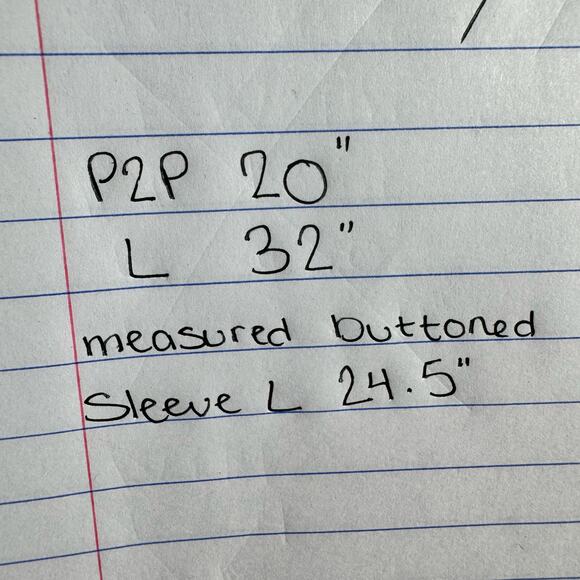 P2P 20"
L 32"
measured buttoned
Sleeve L 24.5"